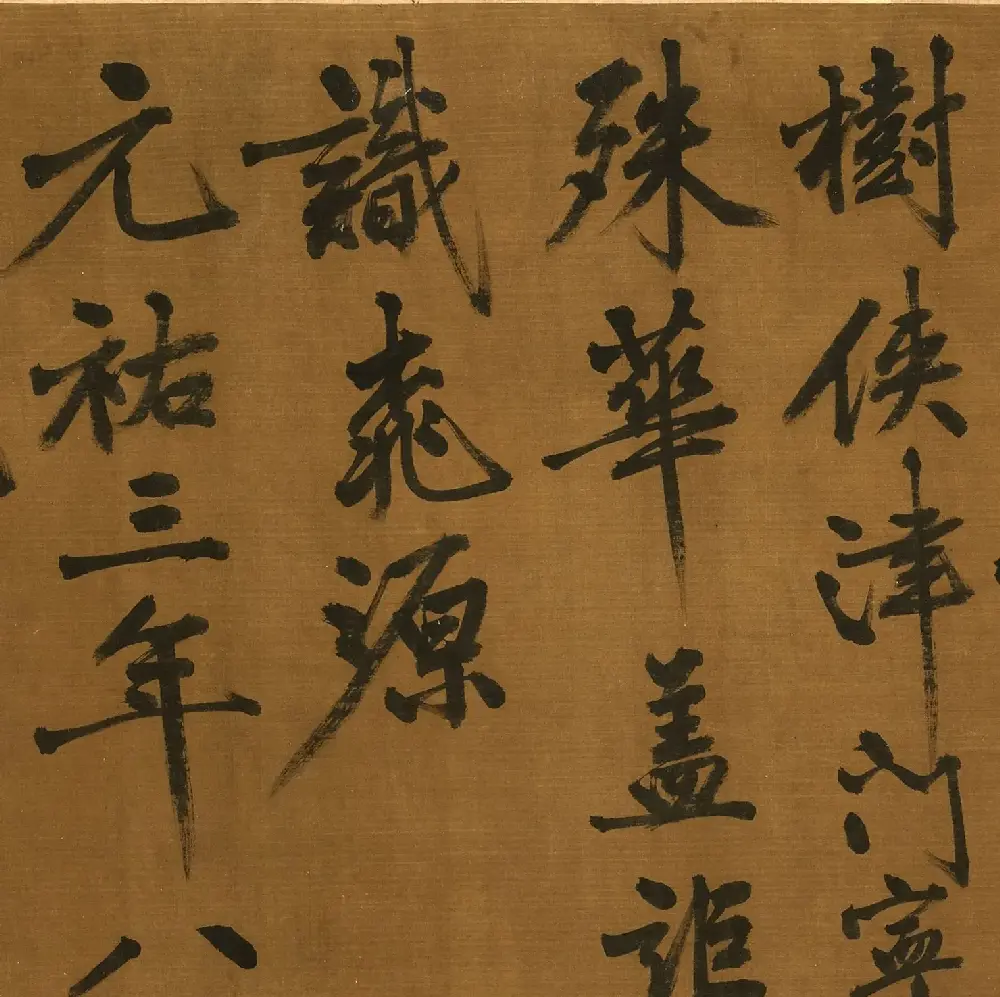 樹俠津門寧
殊華盖詎
識桃源
元祐三年八